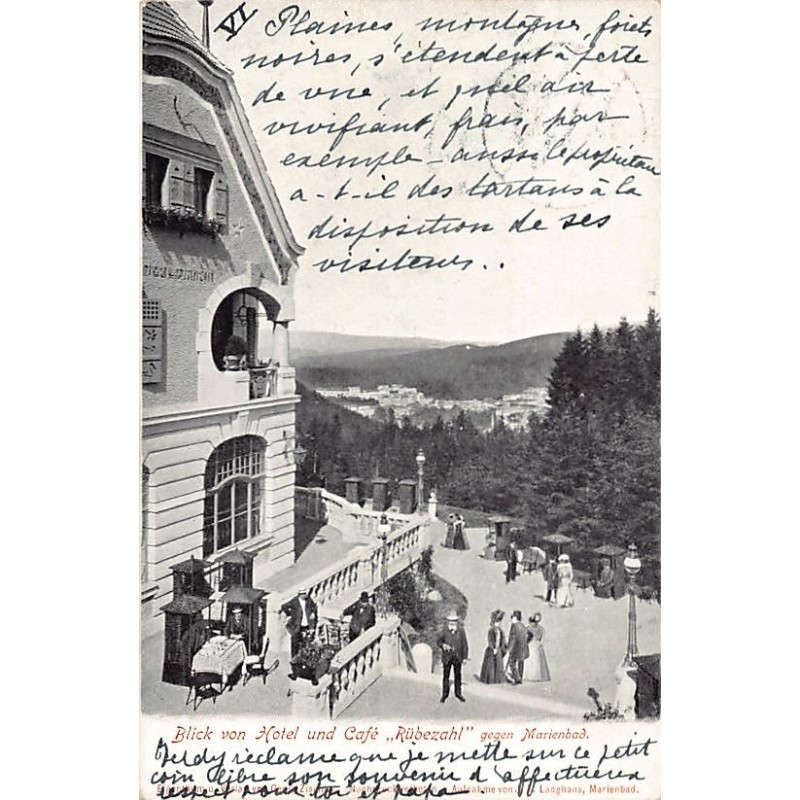 VI Plaines, montagne, forêts
noires, s'étendent à perte
de vue, et quel air
vivifiant, frais, par
exemple - aussi le propriétaire
a-t-il des tartans à la
disposition de ses
visiteurs..
Blick von Hotel und Café „Rübezahl" gegen Marienbad.
Ferdy réclame que je mette sur ce petit
coin libre son souvenir d'affectueux
respect pour toi et papa.
Nachdruck Aufnahme von Langhans, Marienbad.